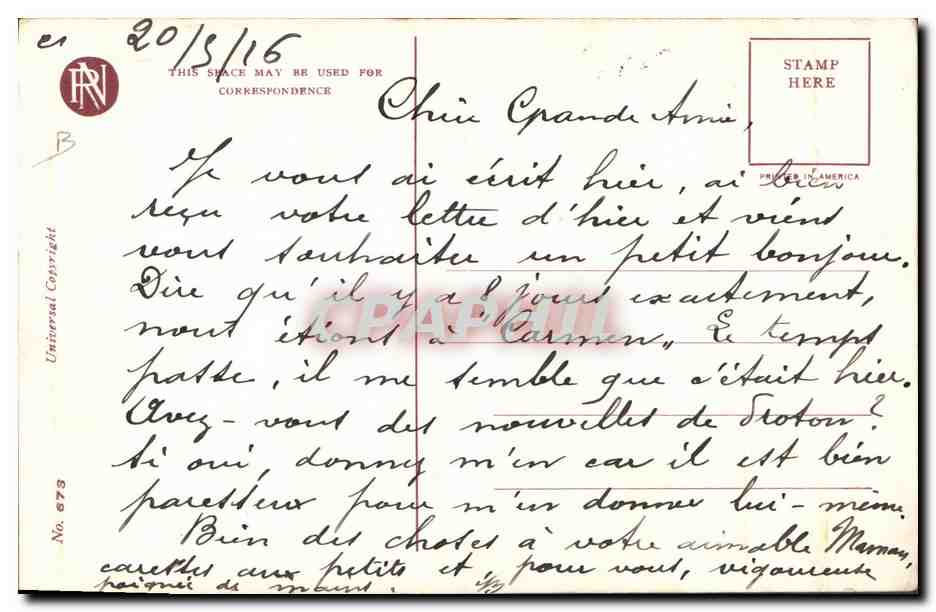 20/5/16
RN
THIS SPACE MAY BE USED FOR
CORRESPONDENCE
STAMP
HERE
PRINTED IN AMERICA
B
Chère Grande Amie,
Je vous ai écrit hier, ai bien
reçu votre lettre d'hier et viens
vous souhaiter un petit bonjour.
Dire qu'il y a 8 jours exactement,
nous étions à "Carmen" Le temps
passe, il me semble que c'était hier.
Avez-vous des nouvelles de Proton?
Si oui, donnez m'en car il est bien
paresseux pour m'en donner lui-même.
Bien des choses à votre aimable Maman,
caresses aux petits et, pour vous, vigoureuse
poignée de mains.
Universal Copyright
No. 673
CPAPHIL